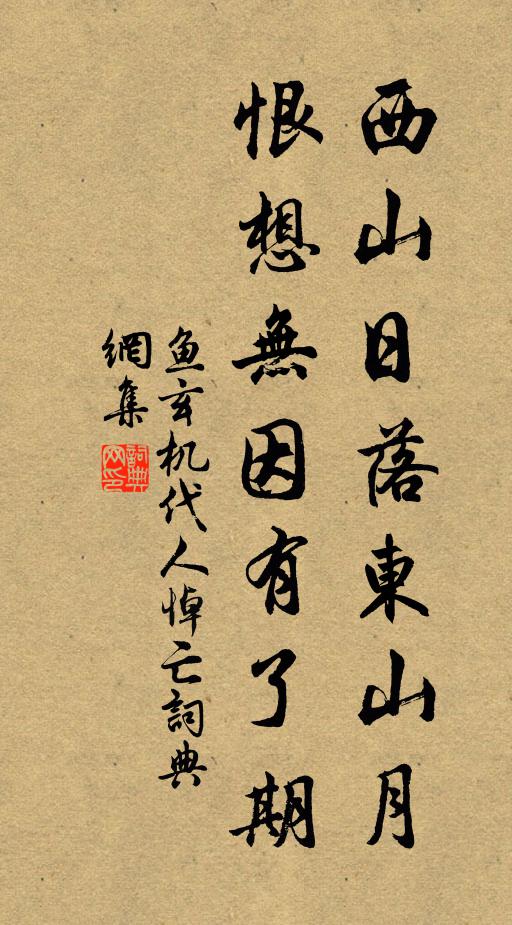 西山日落東山月
恨想無因有了期
鱼玄机代人悼亡詞典
網集
詞典网印